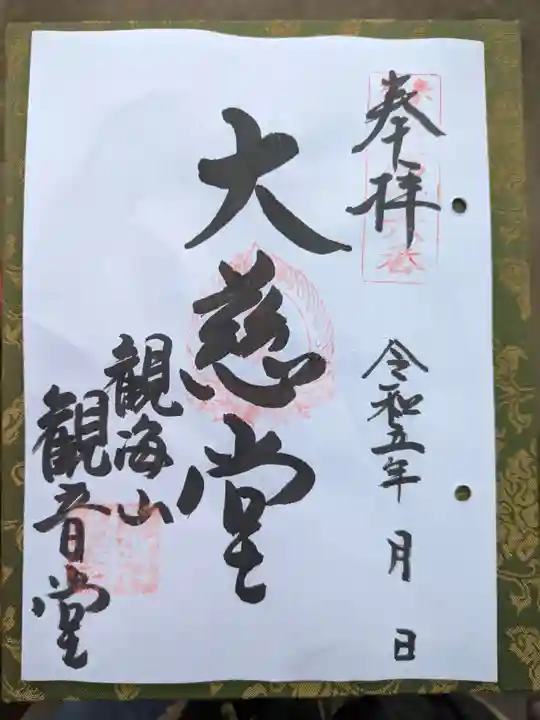 奉拝
令和五年 月 日
大慈堂
観海山
観音堂